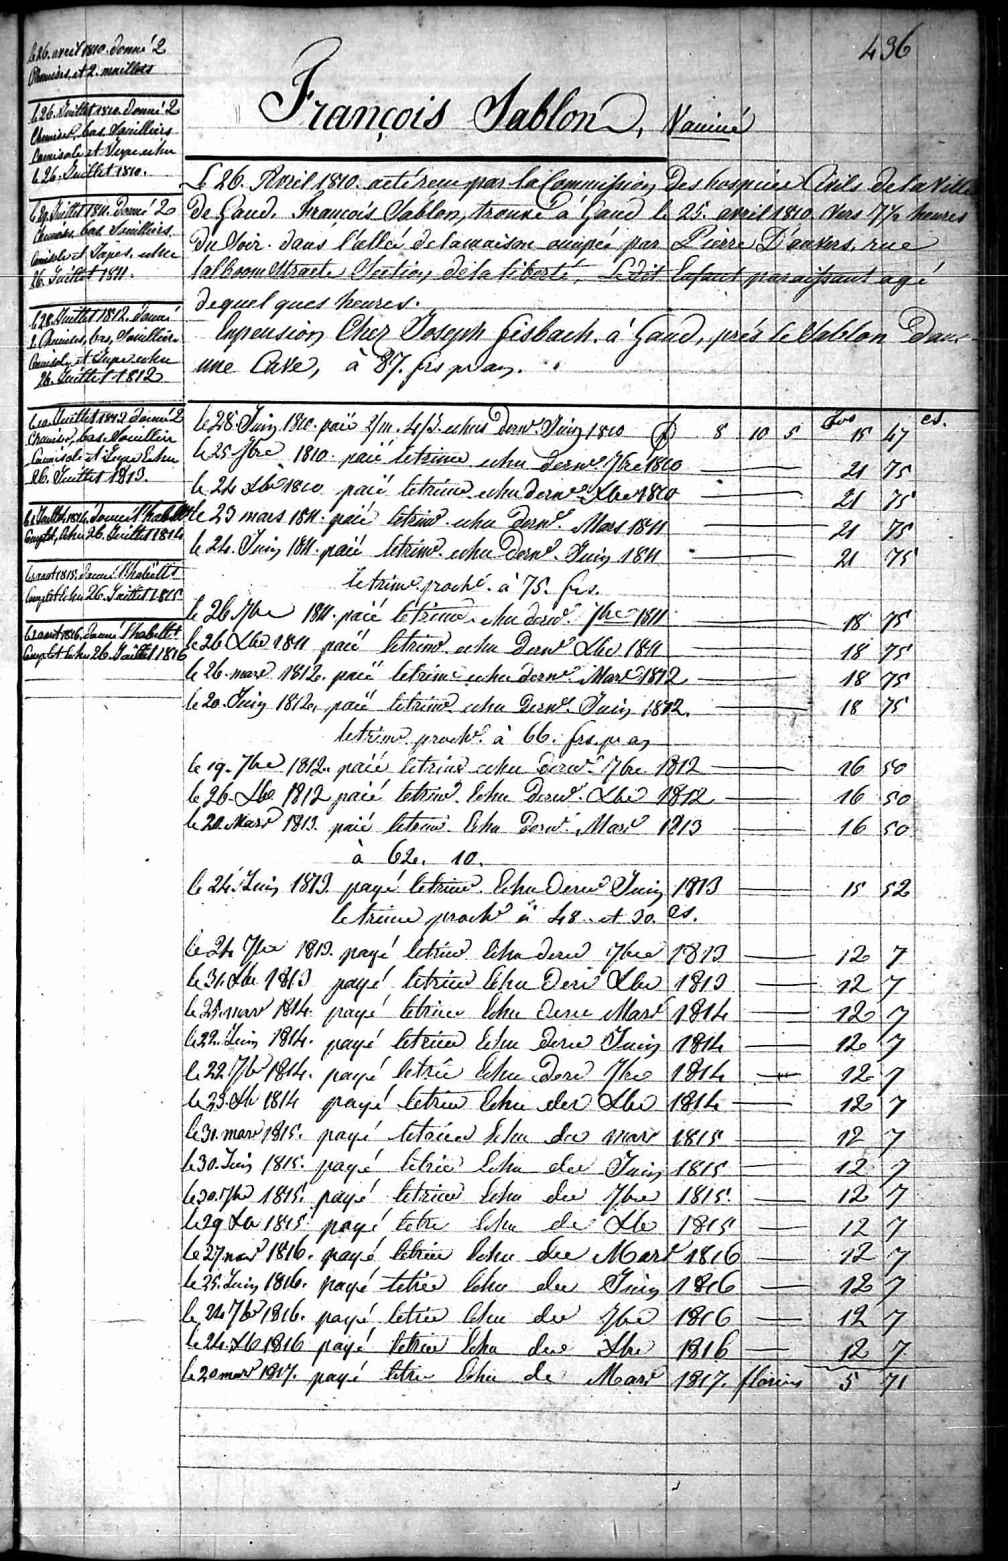 436
François Sablon, Vacciné
Le 26. Avril 1810. acté reçu par la Commission des hospices Civils de la Ville
de Gand. François Sablon, trouvé à Gand le 25. avril 1810. vers 7½ heures
du Soir. dans l'allée de la maison occupée par Pierre D'anvers, rue
Section de la liberté, Ledit Enfant paraissant agé
de quelques heures.
En pension Chez Joseph Gisbach. à Gand, près le Sablon dans
une Cave, à 87. frs pr an.
le 26. avril 1810. donné 2
et 2. maillots
le 26. Juillet 1810. donné 2
Chemises, bas, Souilliers
Camisole et Jupe echu
le 26. Juillet 1810.
Juillet 1811. donné 2
Chemises bas Souilliers
Camisole et Jupes. echu
26. Juillet 1811.
le 28. Juillet 1812. donné
2 Chemises, bas, Souilliers
Camisole et Jupe echu
26. Juillet 1812
Juillet 1812 donné 2
Chemises, bas. Souilliers
Camisole et Jupe Echu
26. Juillet 1813.
Juillet 1814. donné l'habillt
Complet, echu 26. Juillet 1814
aout 1815. donné l'habillt
Complet echu 26. Juillet 1815
aout 1816. donné l'habillt
Complet echu 26. Juillet 1816
fcs cs.
le 28. Juin 1810. paié 2/m. 4/j. echus dernr. Juin 1810 8 10 5 15 47
le 25 7bre 1810. paié le trime echu dernr 7bre 1810 21 75
le 24 Xbre 1810. paié le trime echu dernr Xbre 1810 21 75
le 23 mars 1811. paié le trimr. echu dernr. Mars 1811 21 75
le 24. Juin 1811. paié le trimr. echu dernr. Juin 1811 21 75
le trimr. prochn. à 75. frs.
le 26 7bre 1811. paié le trimr. echu dernr. 7bre 1811 18 75
le 26 Xbre 1811 paié le trimr. echu dernr Xbre 1811 18 75
le 26 mars 1812. paié le trime echu dernr. Mars 1812 18 75
le 20. Juin 1812, paié le trimr. echu dernr. Juin 1812. 18 75
le trimr. prochn. à 66. frs. pr an
le 19. 7bre 1812. paié le trimr echu dernr. 7bre 1812 16 50
le 26. Xbre 1812 paié le trimr. Echu dernr. Xbre 1812 16 50
le 20. Mars 1813. paié le trimr. Echu dernr. Mars 1813 16 50
à 62. 10.
le 24. Juin 1813. payé le trimr. Echu dernr Juin 1813 15 52
le trime prochn à 48. et 30. cs.
le 24 7bre 1813. payé le trime Echu dern 7bre 1813 12 7
le 31. Xbre 1813 payé le trime Echu dern Xbre 1813 12 7
le 25. mars 1814. payé le trime Echu dern Mars 1814 12 7
le 22. Juin 1814. payé le trime Echu dern Juin 1814 12 7
le 22. 7bre 1814. payé le trie Echu dern 7bre 1814 12 7
le 23. Xbre 1814 payé le trim Echu der Xbre 1814 12 7
le 31. mars 1815. payé le trime Echu der mars 1815 12 7
le 30. Juin 1815. payé le trie Echu der Juin 1815 12 7
le 30. 7bre 1815. payé le trime Echu der 7bre 1815. 12 7
le 29 Xbre 1815 payé le tre Echu de Xbre 1815 12 7
le 27 mars 1816. payé le trie Echu der Mars 1816 12 7
le 25. Juin 1816. payé le trie Echu der Juin 1816 12 7
le 24 7bre 1816. payé le trie Echu der 7bre 1816 12 7
le 24. Xbre 1816 payé le trie Echu der Xbre 1816 12 7
le 20 mars 1817. payé le trie Echu de Mars 1817. florins 5 71